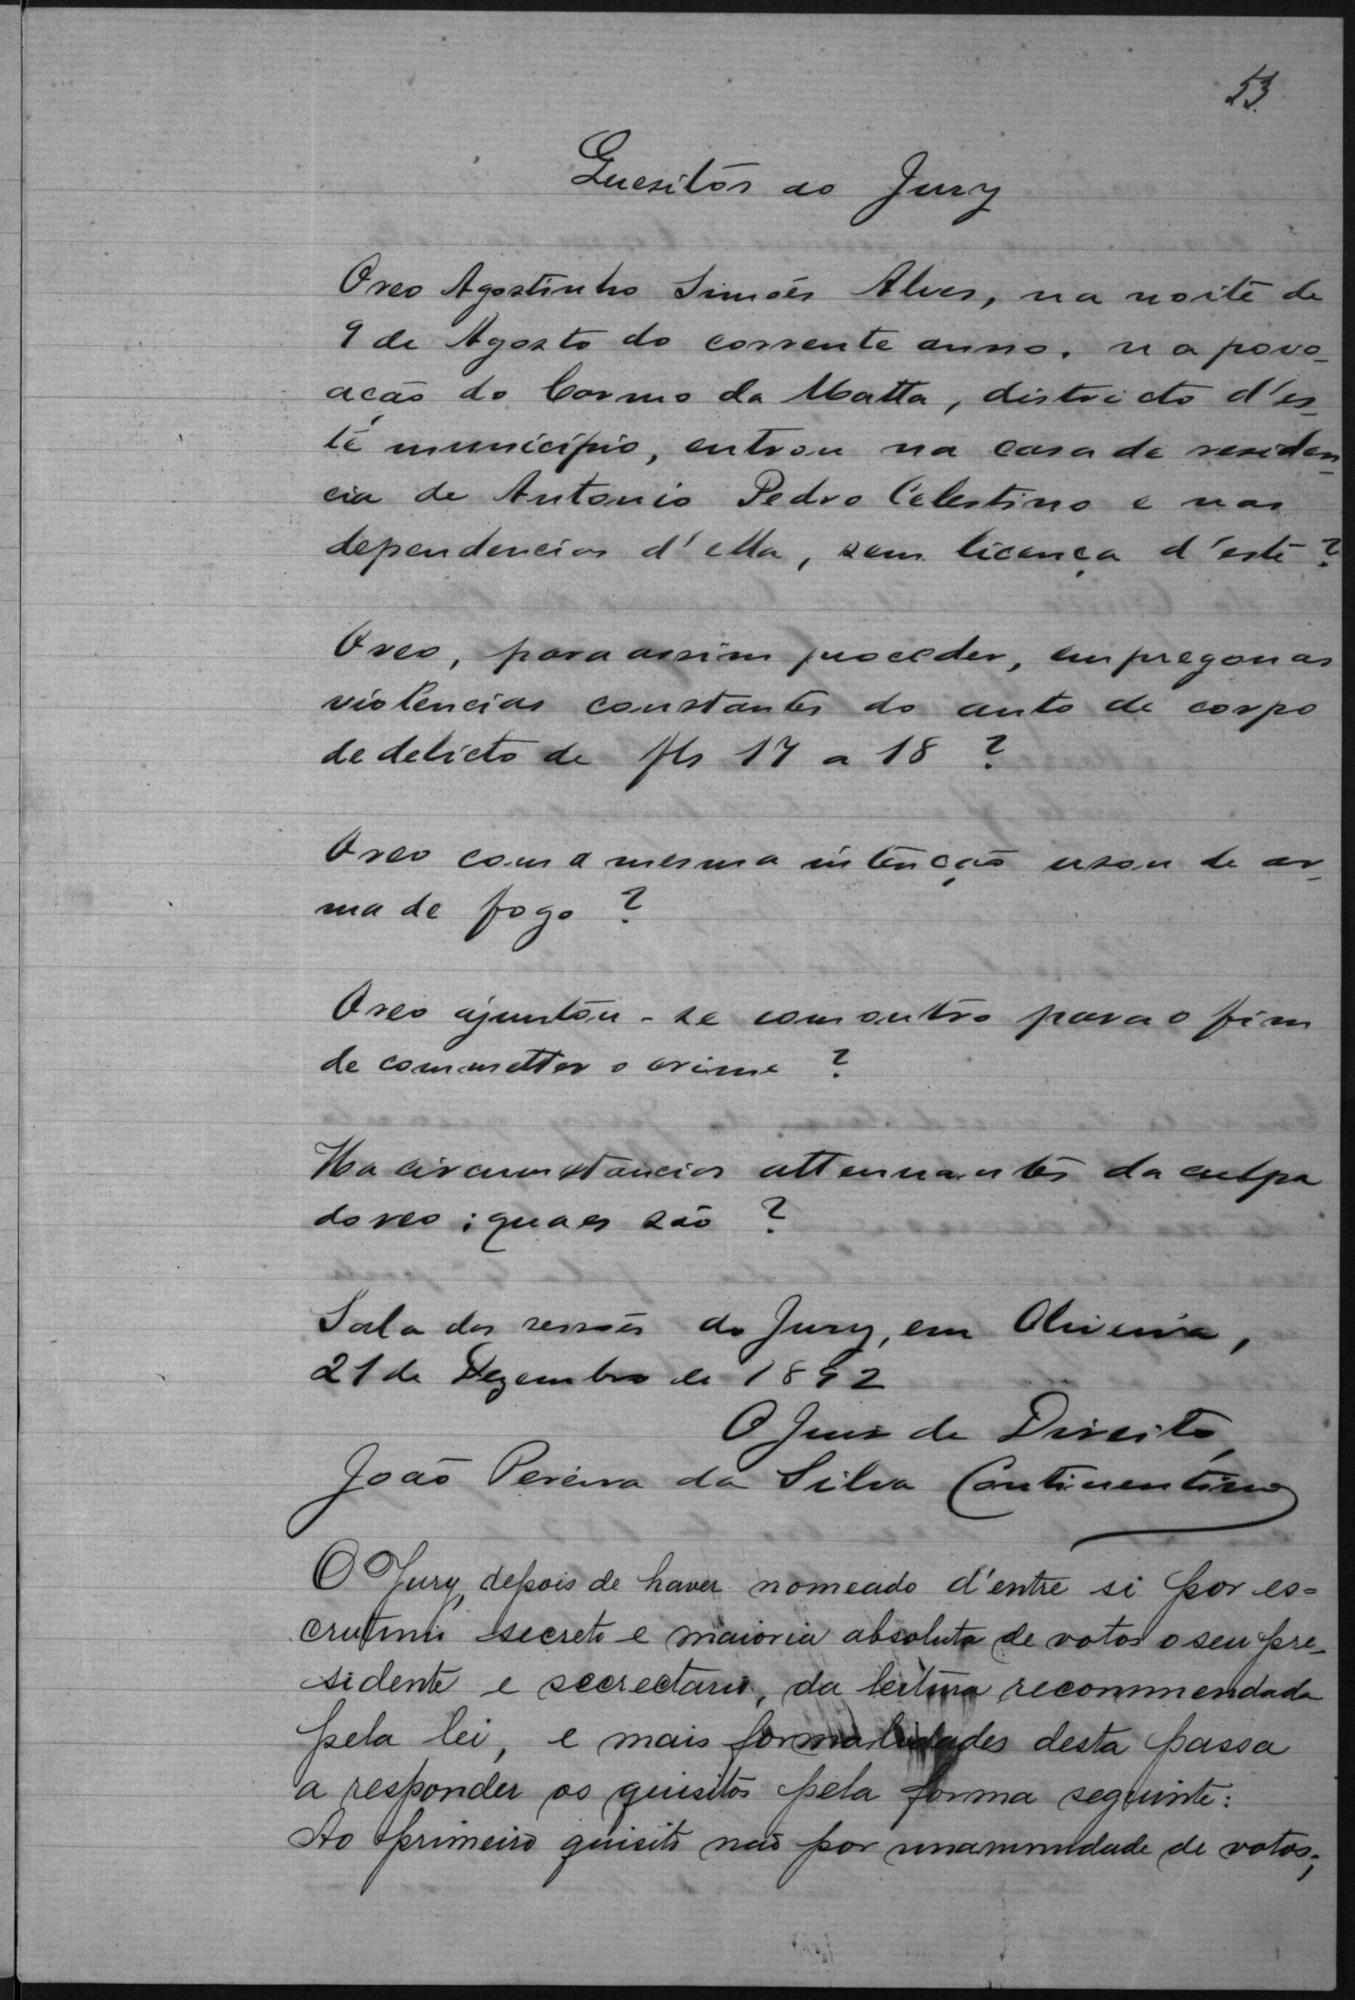 53
Quesitos ao Jury
O reo Agostinho Simões Alves, na noite de
9 de Agosto do corrente anno, na povo-
ação do Carmo da Matta, districto d'es-
te municipio, entrou na casa de residen-
cia de Antonio Pedro Celestino e nas
dependencias d'ella, sem licença d'este?
O reo, para assim proceder, empregou as
violencias constantes do auto de corpo
de delicto de fls 17 a 18?
O reo com a mesma intenção usou de ar-
ma de fogo?
O reo ajuntou-se com outro para o fim
de commetter o crime?
Ha circumstancias attenuantes da culpa
do reo; quaes são?
Sala das sessões do Jury, em Oliveira,
21 de Dezembro de 1892
O Juiz de Direito,
João Pereira da Silva Continentino
O Jury, depois de haver nomeado d'entre si por es=
crutinio secreto e maioria absoluta de votos o seu pre-
sidente e secrectario, da leitura recommendada
pela lei, e mais formalidades desta passa
a responder os quisitos pela forma seguinte:
Ao primeiro quisito não por unanimidade de votos;